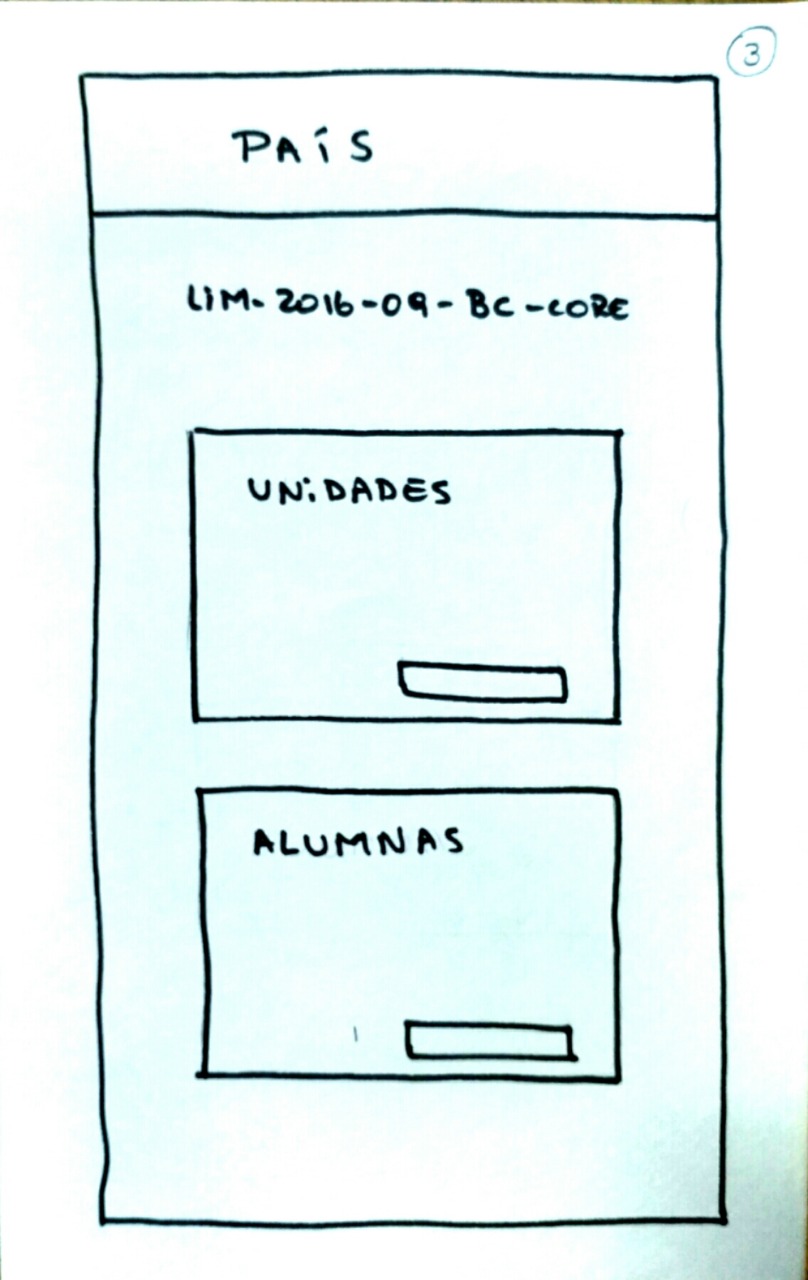 3
PAÍS
LIM-2016-09-BC-CORE
UNiDADES
ALUMNAS